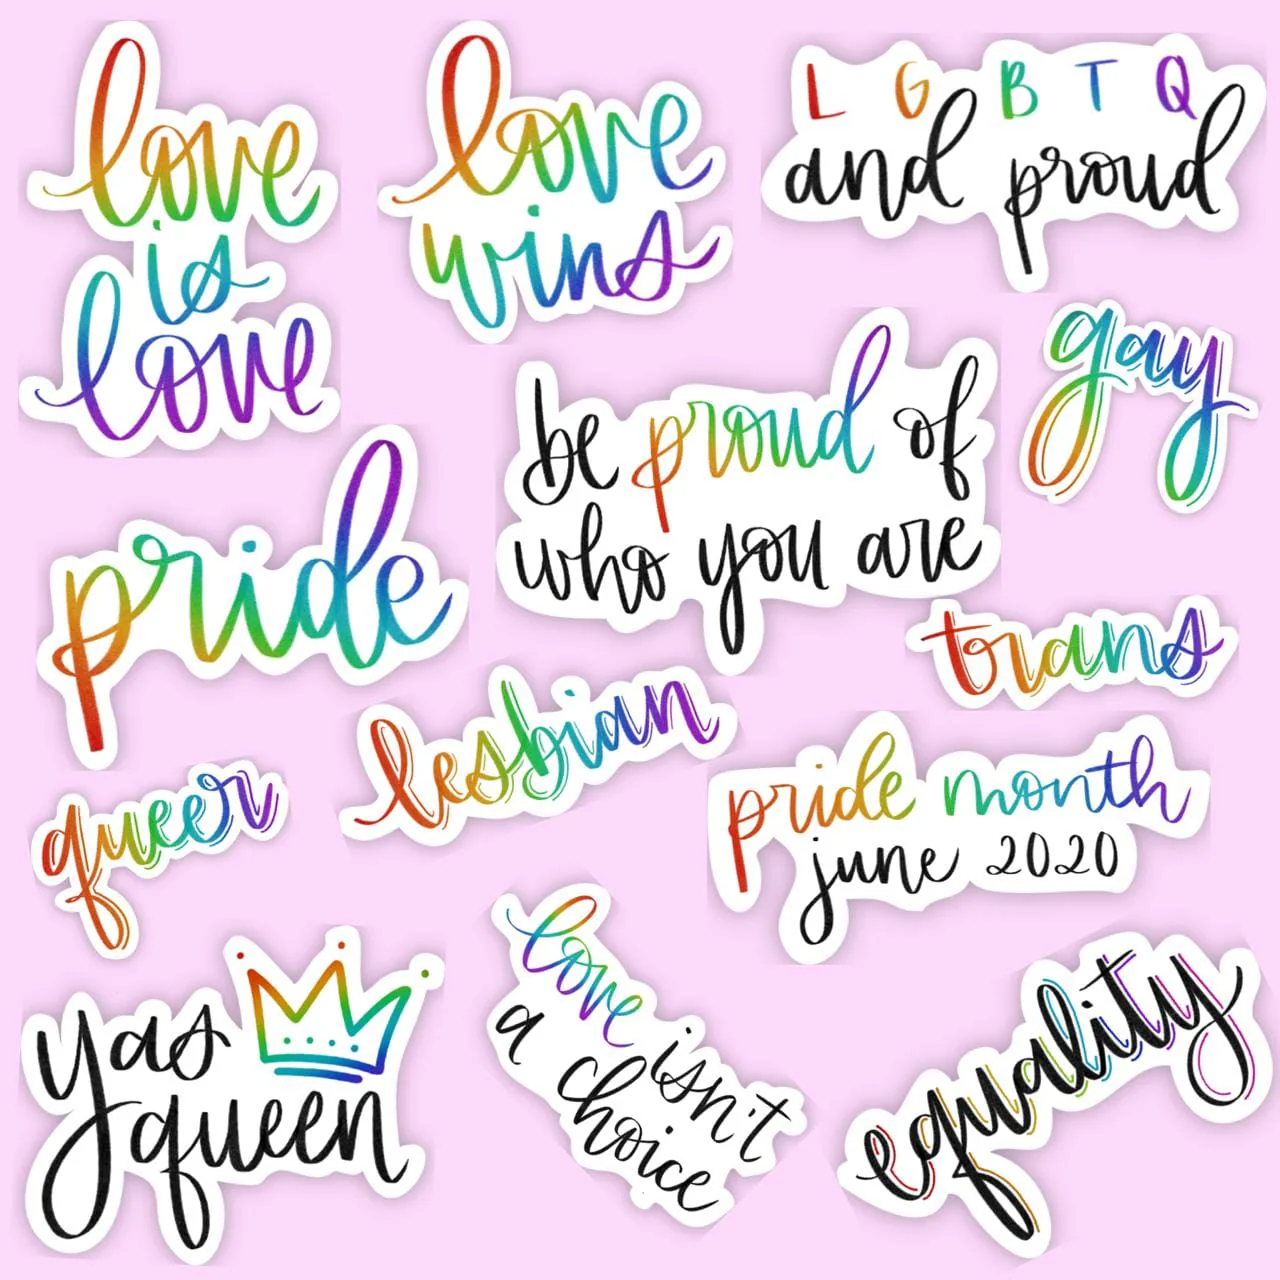 love
is
love
love
wins
L G B T Q
and proud
be proud of
who you are
gay
pride
trans
lesbian
queer
pride month
june 2020
yas
queen
love isn't
a choice
equality